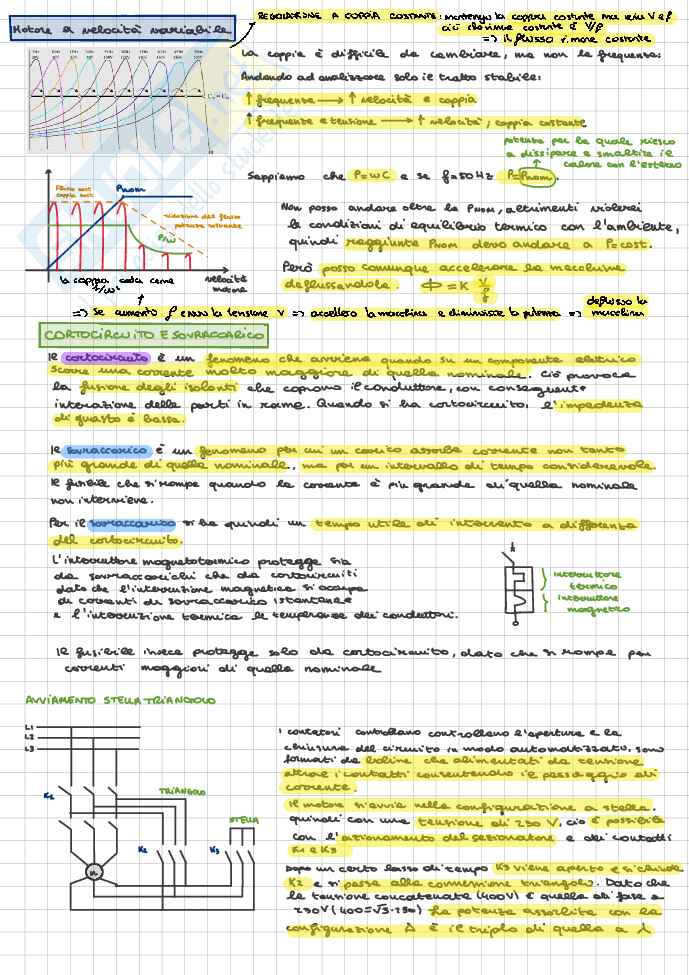 Motore a velocità variabile
REGOLAZIONE A COPPIA COSTANTE: mantengo la coppia costante ma vario V e f
ciò chiamare costante è V/f
=> il flusso rimane costante
La coppia è difficile da cambiare, ma non la frequenza:
Andando ad analizzare solo il tratto stabile:
↑ frequenza → ↑ velocità e coppia
↑ frequenza e tensione → ↑ velocità, coppia costante
potenza per la quale riesco
a dissipare e smaltire il
calore con l'esterno
Sappiamo che P=ωC e se f=50Hz P=Pnom.
Flusso cost
coppia cost
Pnom
riduzione del flusso
potenza costante
P/ω
velocità
motore
la coppia cala come
1/ω²
Non posso andare oltre la Pnom, altrimenti violerei
la condizioni di equilibrio termico con l'ambiente,
quindi raggiunta Pnom devo andare a P=cost.
Però posso comunque accelerare la macchina
deflussandola. Φ = K V/f
=> Se aumento f e non la tensione V => accelero la macchina e diminuisce la potenza => deflusso la
macchina
CORTOCIRCUITO E SOVRACCARICO
Il cortocircuito è un fenomeno che avviene quando su un componente elettrico
scorre una corrente molto maggiore di quella nominale. Ciò provoca
la fusione degli isolanti che coprono il conduttore, con conseguente
interazione delle parti in rame. Quando si ha cortocircuito, l'impedenza
di guasto è bassa.
Il sovraccarico è un fenomeno per cui un carico assorbe corrente non tanto
più grande di quella nominale, ma per un intervallo di tempo considerevole.
Il fusibile che si rompe quando la corrente è più grande di quella nominale
non interviene.
Per il sovraccarico si ha quindi un tempo utile di intervento a differenza
del cortocircuito.
L'interruttore magnetotermico protegge sia
da sovraccarichi che da cortocircuiti
dato che l'interruzione magnetica si occupa
di correnti di sovraccarico istantanee
e l'interruzione termica le temperature dei conduttori.
interruttore
termico
interruttore
magnetico
Il fusibile invece protegge solo da cortocircuito, dato che si rompe per
correnti maggiori di quella nominale
AVVIAMENTO STELLA TRIANGOLO
L1
L2
L3
K1
TRIANGOLO
STELLA
K2
K3
M
I contatori controllano controllano l'apertura e la
chiusura del circuito in modo automatizzato, sono
formati da bobine che alimentati da tensione
attrae i contatti consentendo il passaggio di
corrente.
Il motore si avvia nella configurazione a stella,
quindi con una tensione di 230 V, ciò è possibile
con l'azionamento del sezionatore e dei contatti
K1 e K3
Dopo un certo lasso di tempo K3 viene aperto e si chiude
K2 e si passa alla connessione triangolo. Dato che
la tensione concatenata (400V) è quella di fase a
230V (400=√3·230) la potenza assorbita con la
configurazione Δ è il triplo di quella a λ